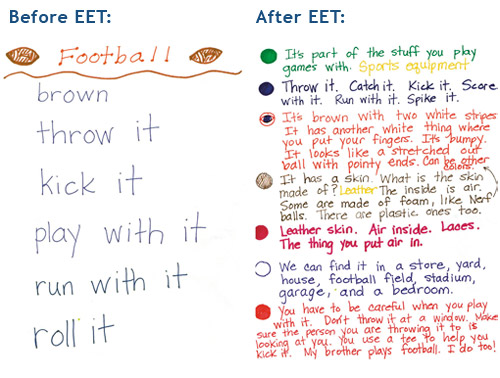 Before EET:
Football
brown
throw it
kick it
play with it
run with it
roll it
After EET:
It's part of the stuff you play
games with. Sports equipment
Throw it. Catch it. Kick it. Score
with it. Run with it. Spike it.
It's brown with two white stripes
It has another white thing where
you put your fingers. It's bumpy.
It looks like a stretched out
ball with pointy ends. Can be other
colors.
It has a skin. What is the skin
made of? Leather The inside is air.
Some are made of foam, like Nerf
balls. There are plastic ones too.
Leather skin. Air inside. Laces.
The thing you put air in.
We can find it in a store, yard,
house, football field, stadium,
garage, and a bedroom.
You have to be careful when you play
with it. Don't throw it at a window. Make
sure the person you are throwing it to is
looking at you. You use a tee to help you
kick it. My brother plays football. I do too!